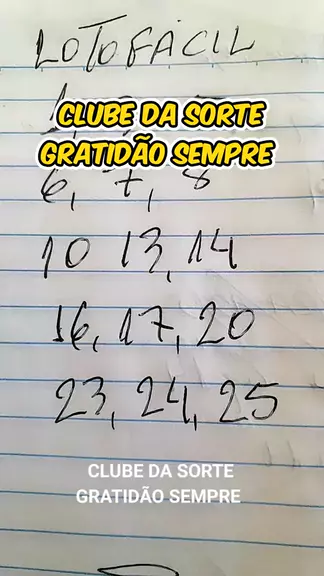 LOTOFÁCIL
CLUBE DA SORTE
GRATIDÃO SEMPRE
6, 7, 8
10 13, 14
16, 17, 20
23, 24, 25
CLUBE DA SORTE
GRATIDÃO SEMPRE